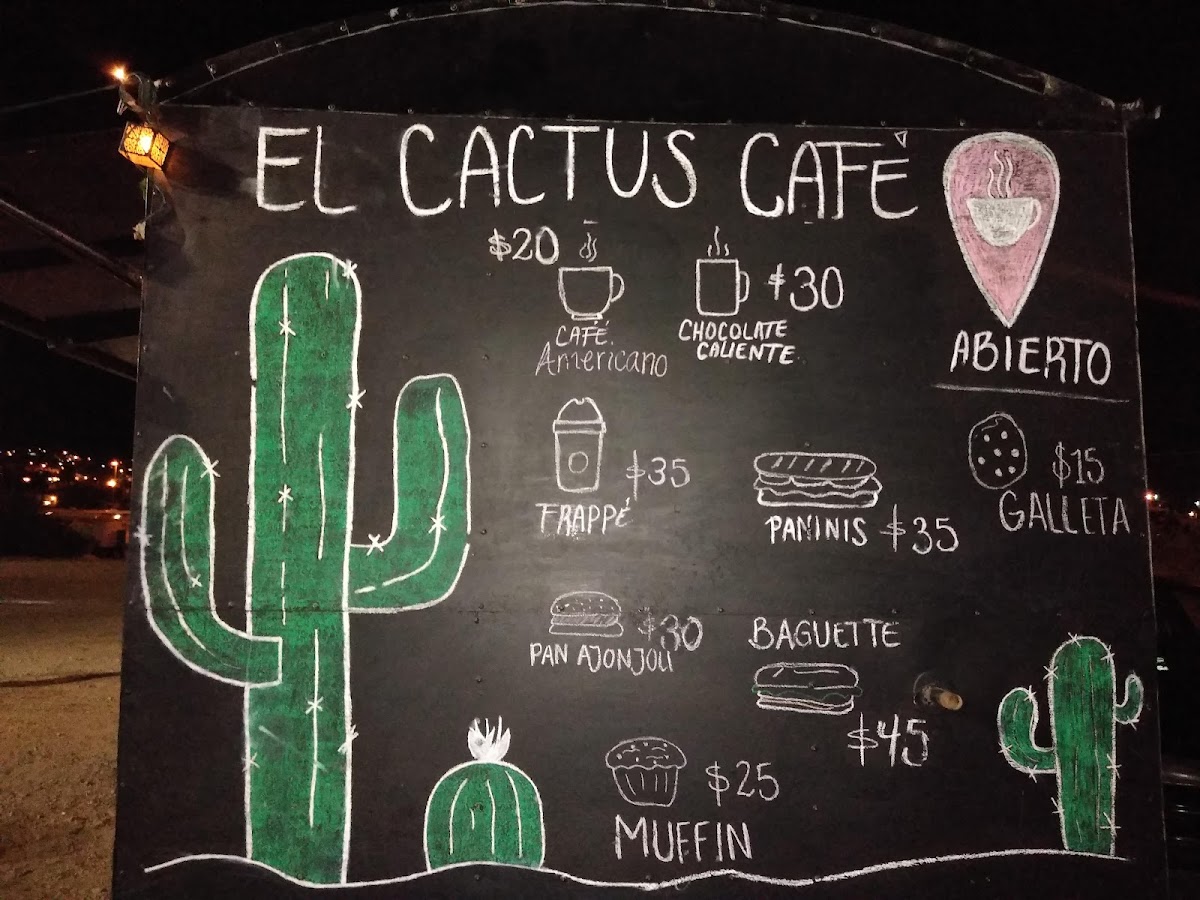 EL CACTUS CAFÉ
$20
CAFÉ
Americano
CHOCOLATE
CALIENTE
$30
ABIERTO
FRAPPÉ
$35
PANINIS $35
$15
GALLETA
PAN AJONJOLI
$30
BAGUETTE
$45
$25
MUFFIN